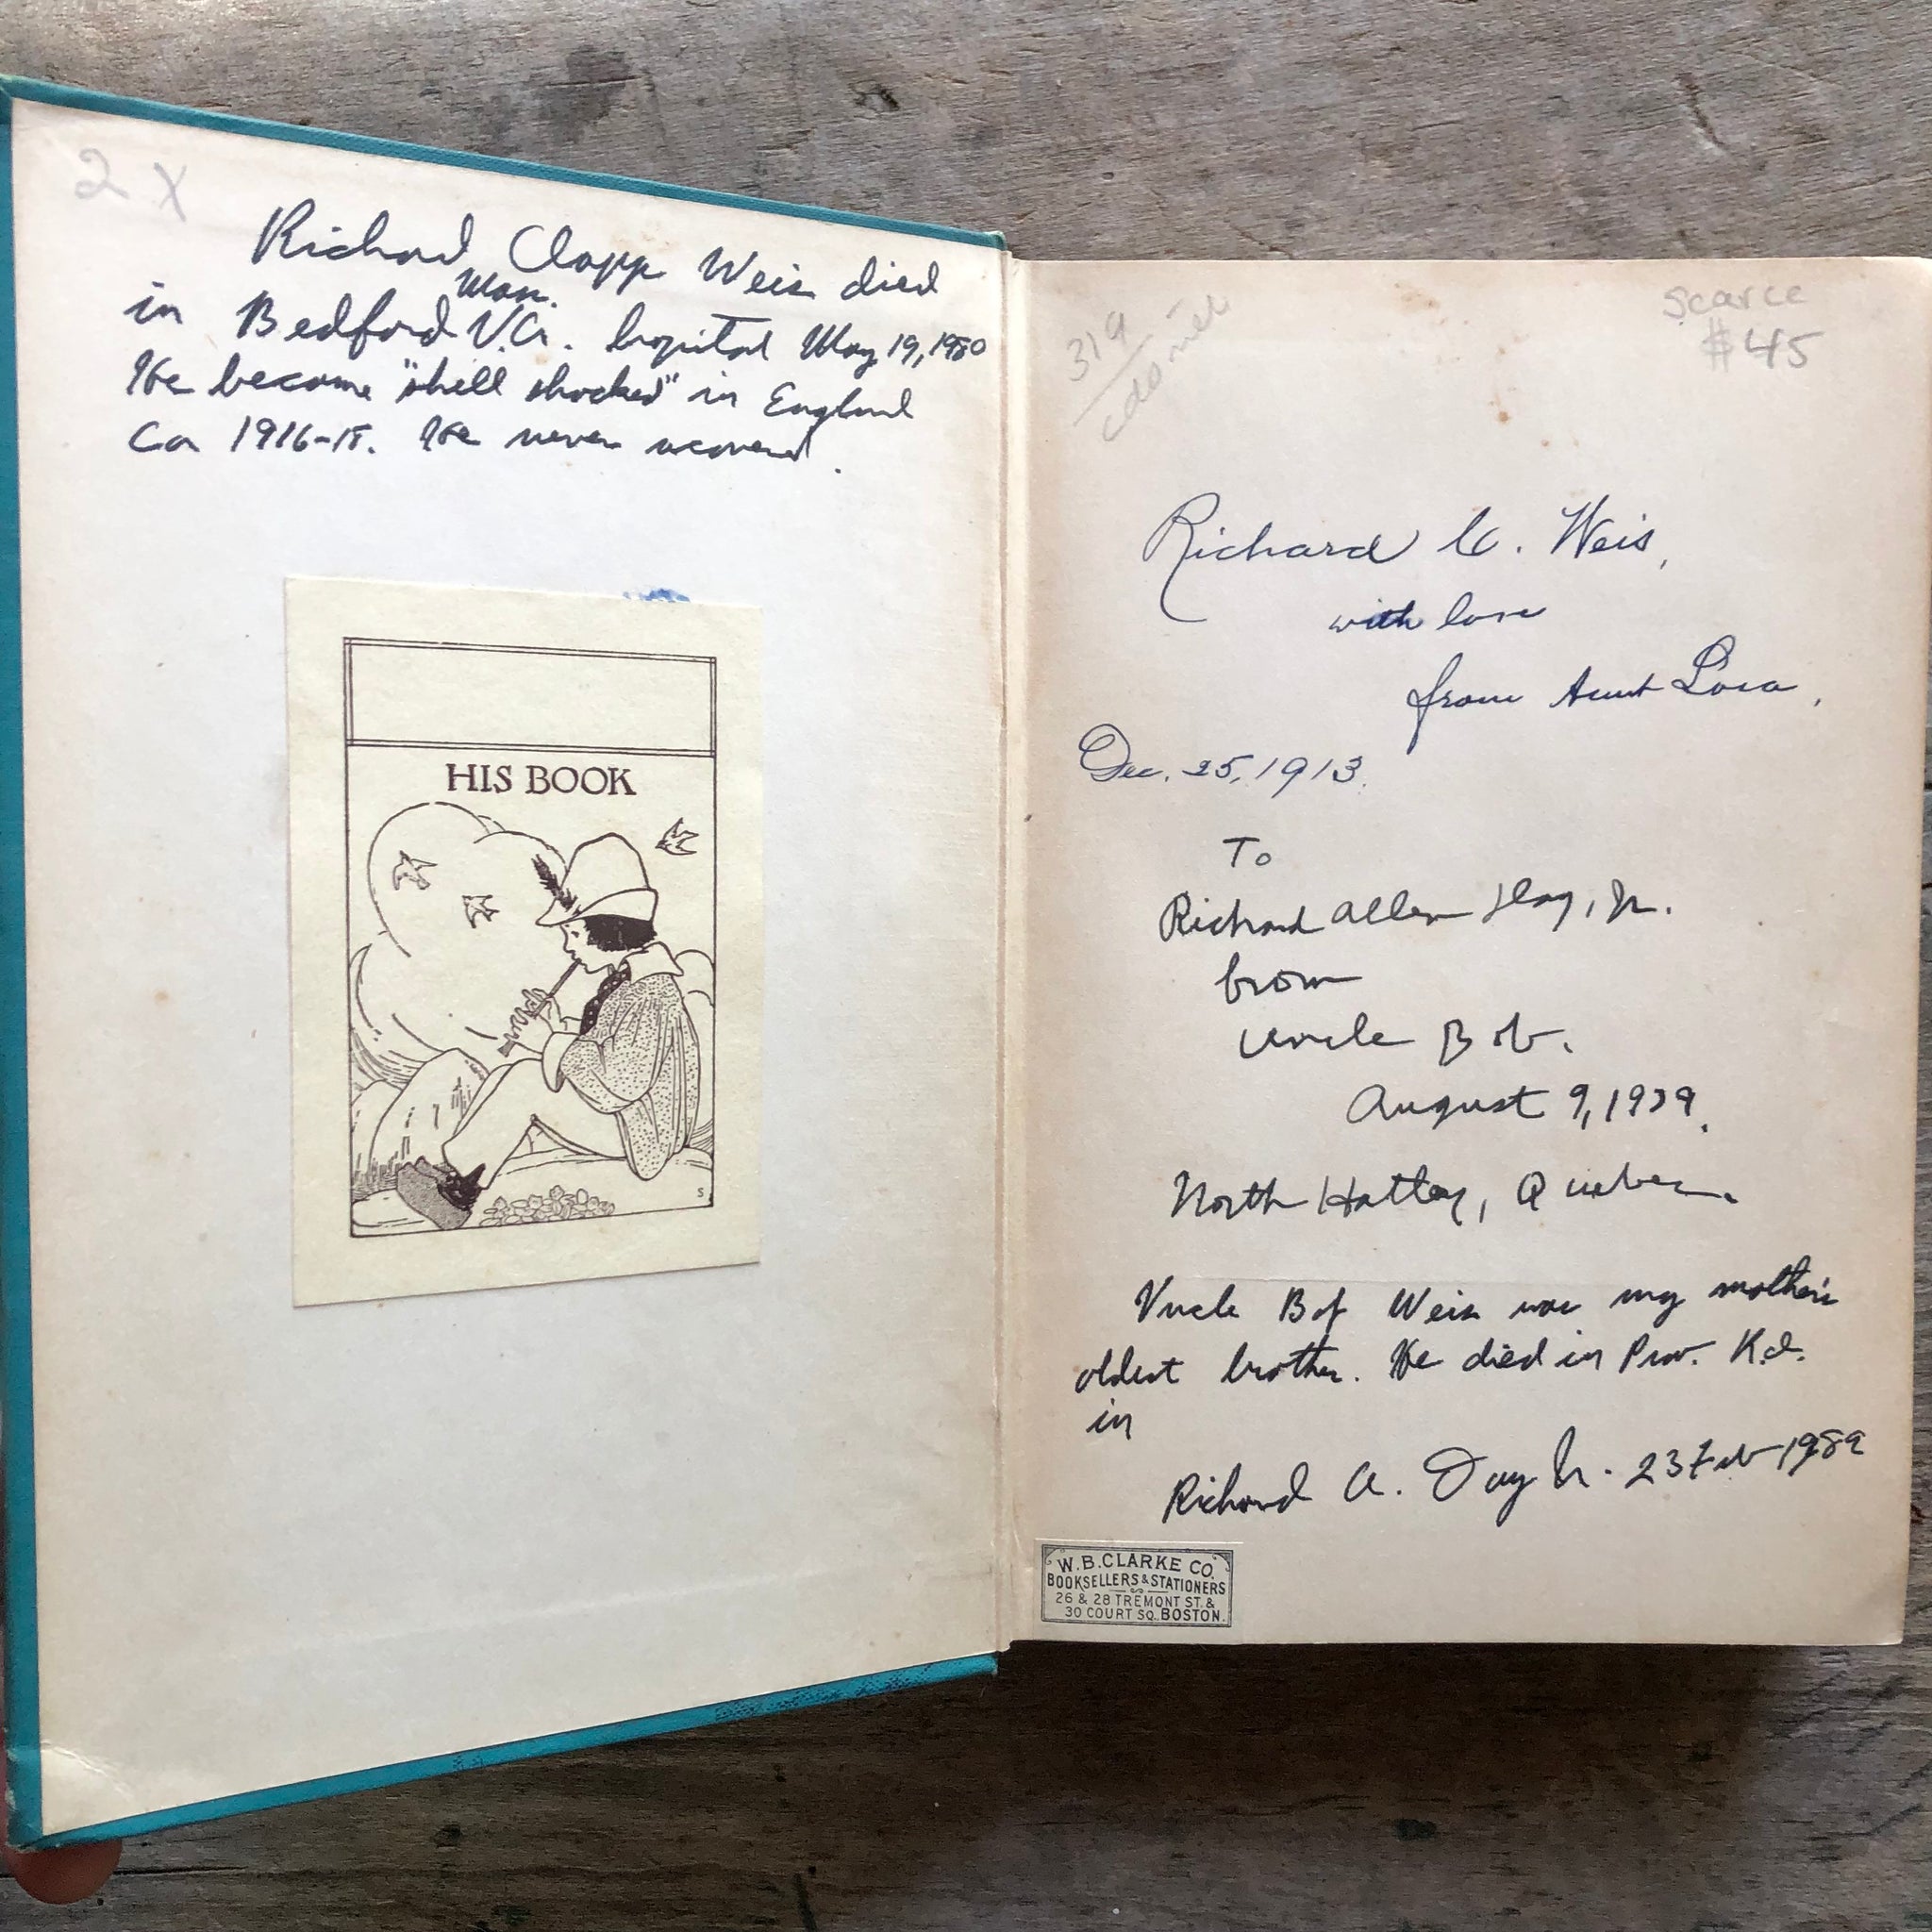 2 X
Richard Clapp Weis died
Mass.
in Bedford V.A. hospital May 19, 1980
He became "shell shocked" in England
Ca 1916-18. He never recovered.
HIS BOOK
S
319
scarce
$45
Richard C. Weis,
with love
from Aunt Lora,
Dec. 25, 1913.
To
Richard Allen Day, Jr.
from
Uncle Bob.
August 9, 1939.
North Hatley, Quebec.
Uncle Bob Weis was my mother's
oldest brother. He died in Prov. R.I.
in
Richard A. Day Jr. 23 Feb 1989
W.B. CLARKE CO.
BOOKSELLERS & STATIONERS
26 & 28 TREMONT ST. &
30 COURT SQ. BOSTON.